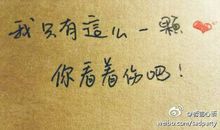 我只有這么一顆❤
你看着伤吧！
weibo.com/sadparty